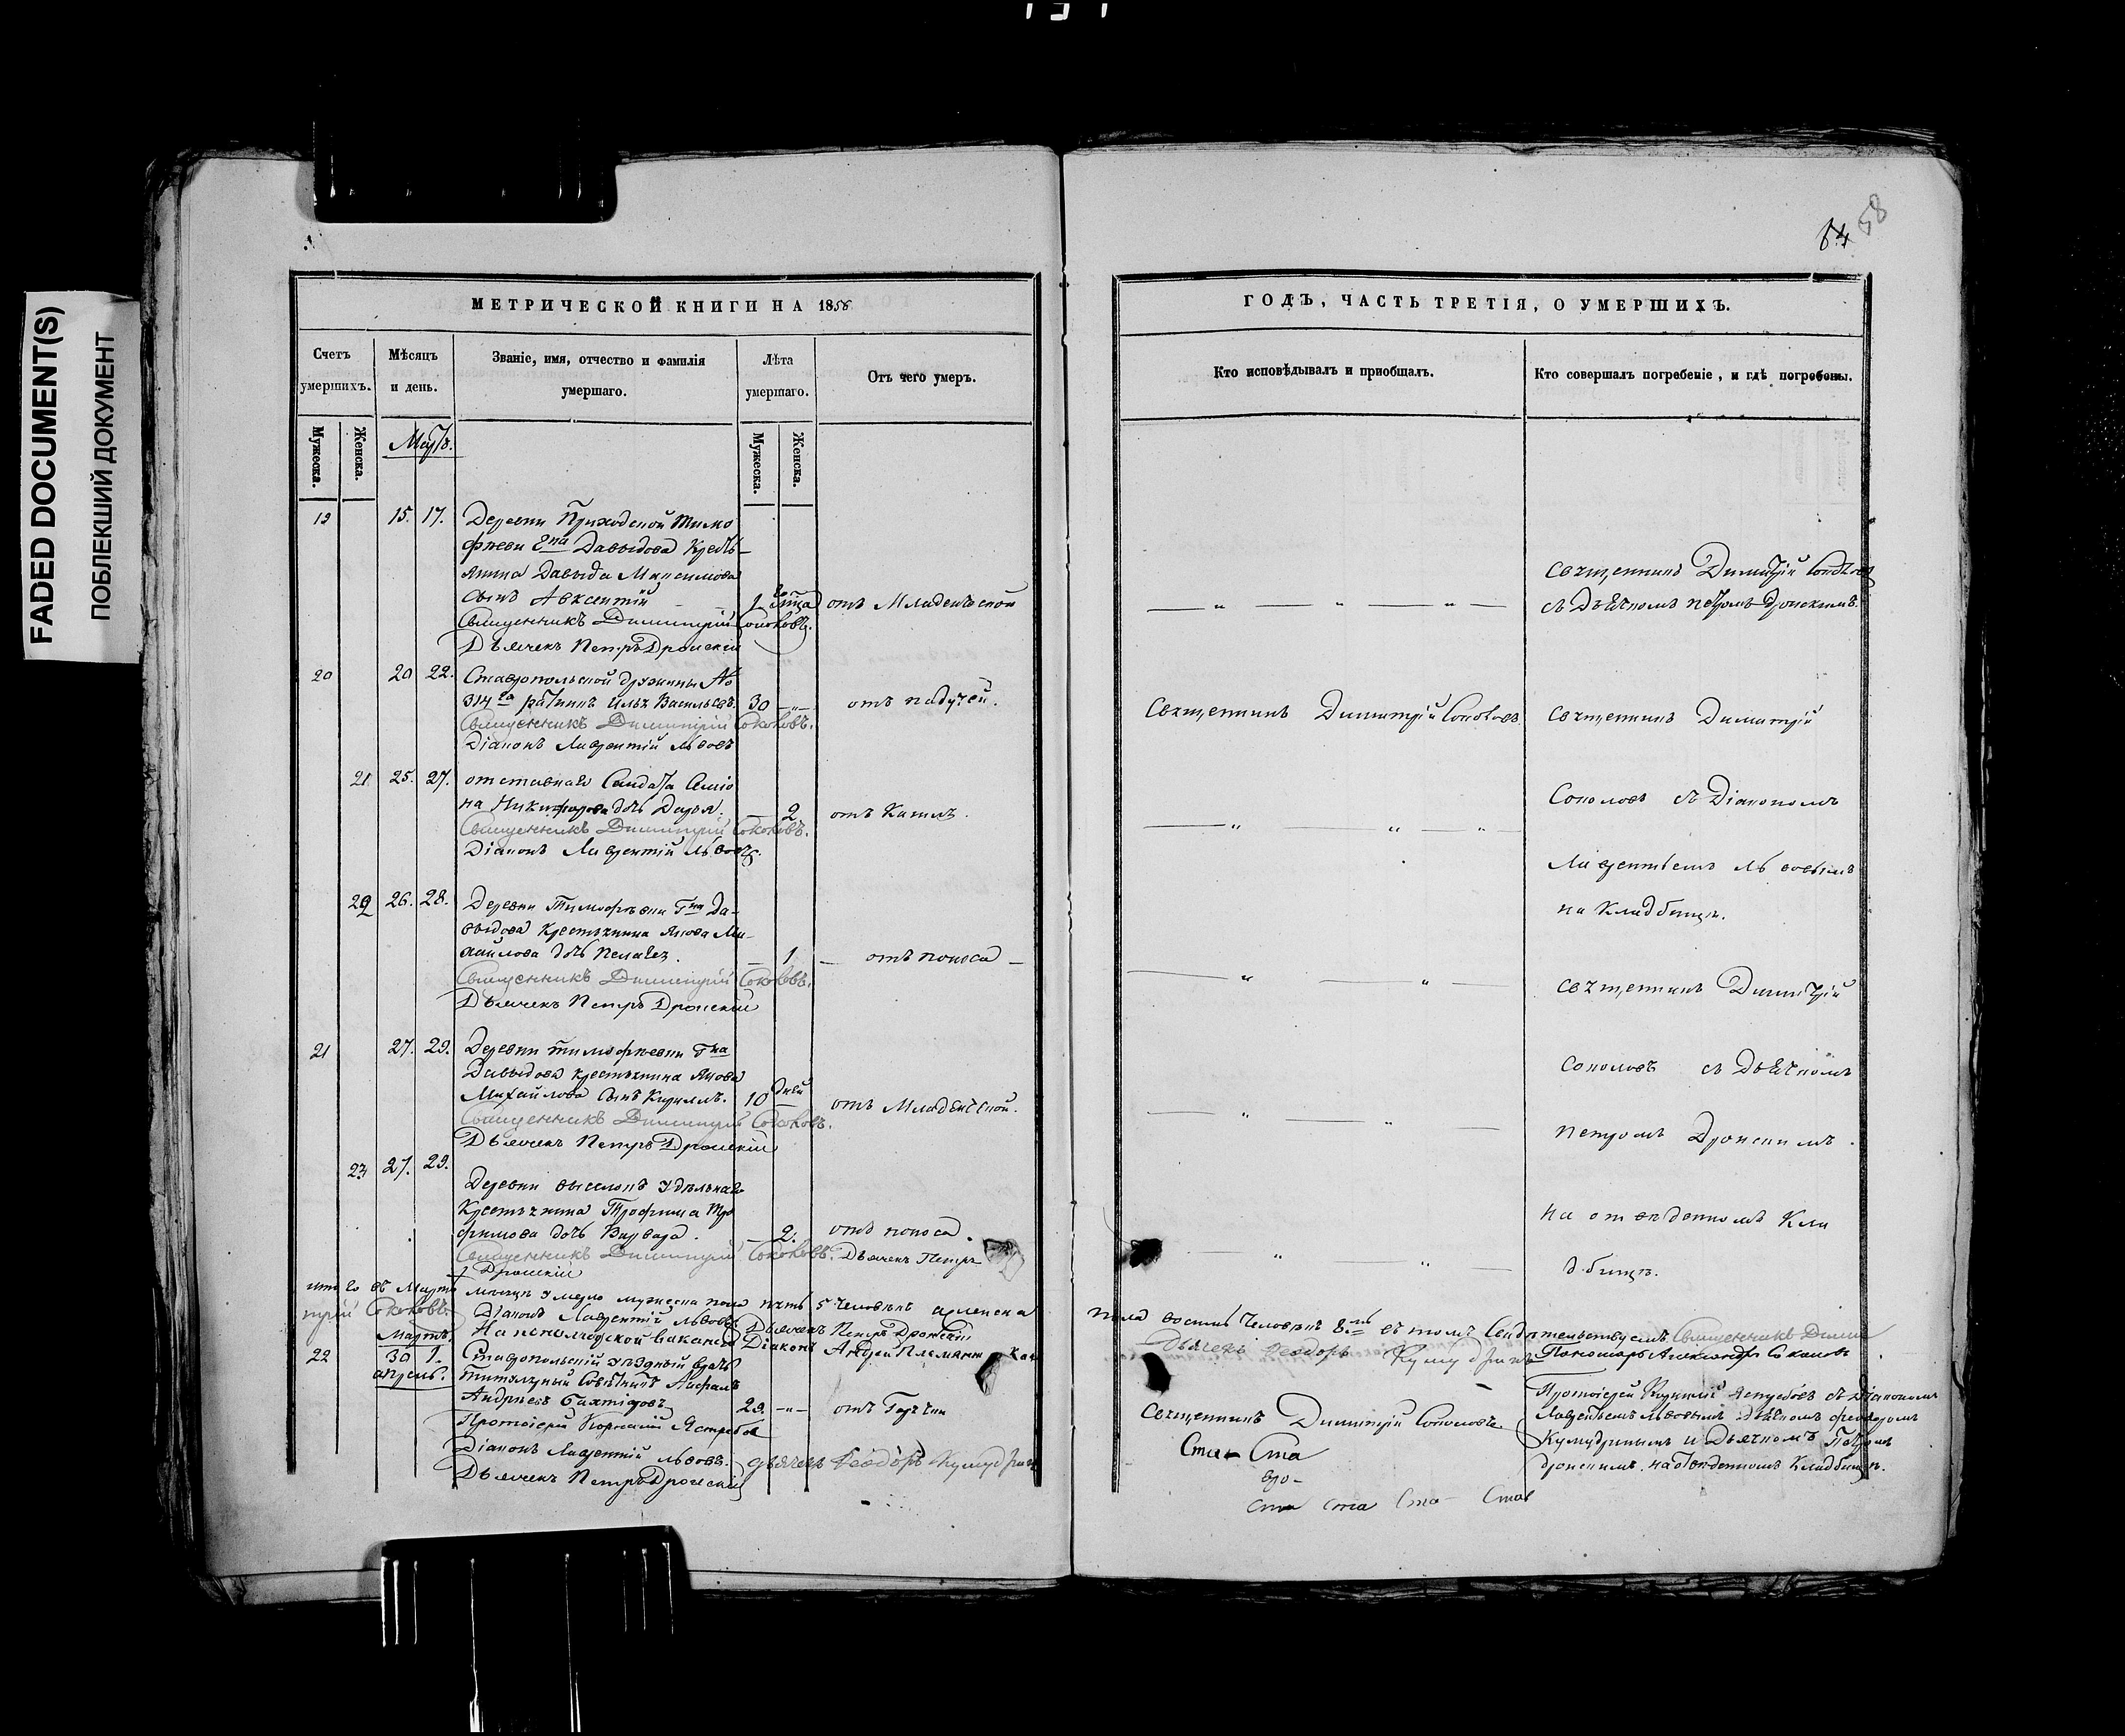 FADED DOCUMENT(S)
ПОБЛЕКШИЙ ДОКУМЕНТ
58
МЕТРИЧЕСКОЙ КНИГИ НА 1856
Счетъ умершихъ.
Мѣсяцъ и день.
Званіе, имя, отчество и фамилія умершаго.
Лѣта умершаго.
Отъ чего умеръ.
Мужеска.
Женска.
Мужеска.
Женска.
Мартъ.
19 15. 17. Деревни Приходской Тимо
фѣевки Гна Давыдова Кресть-
янина Давыда Максимова
сынъ Авксентій 1 отъ Младенческой
Священникъ Димитрій Соколовъ.
Дьячекъ Петръ Дронскій
20 20 22. Ставропольской дружины №
314го ратникъ Илья Васильевъ. 30 -"- отъ падучей.
Священникъ Димитрій Соколовъ.
Діаконъ Лаврентій Львовъ
21 25. 27. отставнаго Салдата Симіо
на Никифорова дочь Дарья. 2 отъ Кашля.
Священникъ Димитрій Соколовъ.
Діаконъ Лаврентій Львовъ.
22 26. 28. Деревни Тимофѣевки Гна Да-
выдова Крестьянина Якова Ми-
хайлова дочь Пелагея. 1. отъ поноса
Священникъ Димитрій Соколовъ.
Дьячекъ Петръ Дронскій
21 27. 29. Деревни Тимофѣевки Гна
Давыдова Крестьянина Якова
Михайлова Сынъ Кириллъ. 10 дней отъ Младенческой.
Священникъ Димитрій Соколовъ.
Дьячекъ Петръ Дронскій
23 27. 29.
Деревни выселокъ удѣльнаго
Крестьянина Трофима Тро
фимова дочь Варвара. 2. отъ поноса.
Священникъ Димитрій Соколовъ. Дьячекъ Петръ
Дронскій
Итого въ Мартѣ мѣсяцѣ умерло мужеска пола пять 5 человѣкъ а женска
трій Соколовъ. Діаконъ Лаврентій Львовъ. Дьячекъ Петръ Дронскій
Мартъ. Діаконъ Андрей
22 30 1. Ставропольскій уѣздный врачь
апрель. титулярный Совѣтникъ
Андреевъ 29. -"- отъ Горячки
Протоіерей Ястребовъ
Діаконъ Лаврентій Львовъ. дьячекъ Ѳеодоръ
Дьячекъ Петръ Дронскій
ГОДЪ, ЧАСТЬ ТРЕТІЯ, О УМЕРШИХЪ.
Кто исповѣдывалъ и пріобщалъ.
Кто совершалъ погребеніе, и гдѣ погребены.
Священникъ Димитрій Соколовъ
съ Дьячкомъ Петромъ Дронскимъ.
Священникъ Димитрій Соколовъ
Священникъ Димитрій
Соколовъ съ Діакономъ
Лаврентіемъ Львовымъ
на Кладбищѣ.
Священникъ Димитрій
Соколовъ съ Дьячкомъ
Петромъ Дронскимъ.
На отведенномъ Кла
дбищѣ.
пола восемь человѣкъ 8. въ томъ Свидѣтельствуемъ Священникъ Дими
Дьячекъ Ѳеодоръ Пономарь Александръ Соколовъ
Священникъ Димитрій Соколовъ.
Протоіерей Ястребовъ съ Діакономъ
Лаврентьемъ Львовымъ дьячкомъ Феодоромъ
и Дьячкомъ Петромъ
Дронскимъ. на отведенномъ Кладбищѣ.
Ста- Ста
Ста Ста Ста- Став